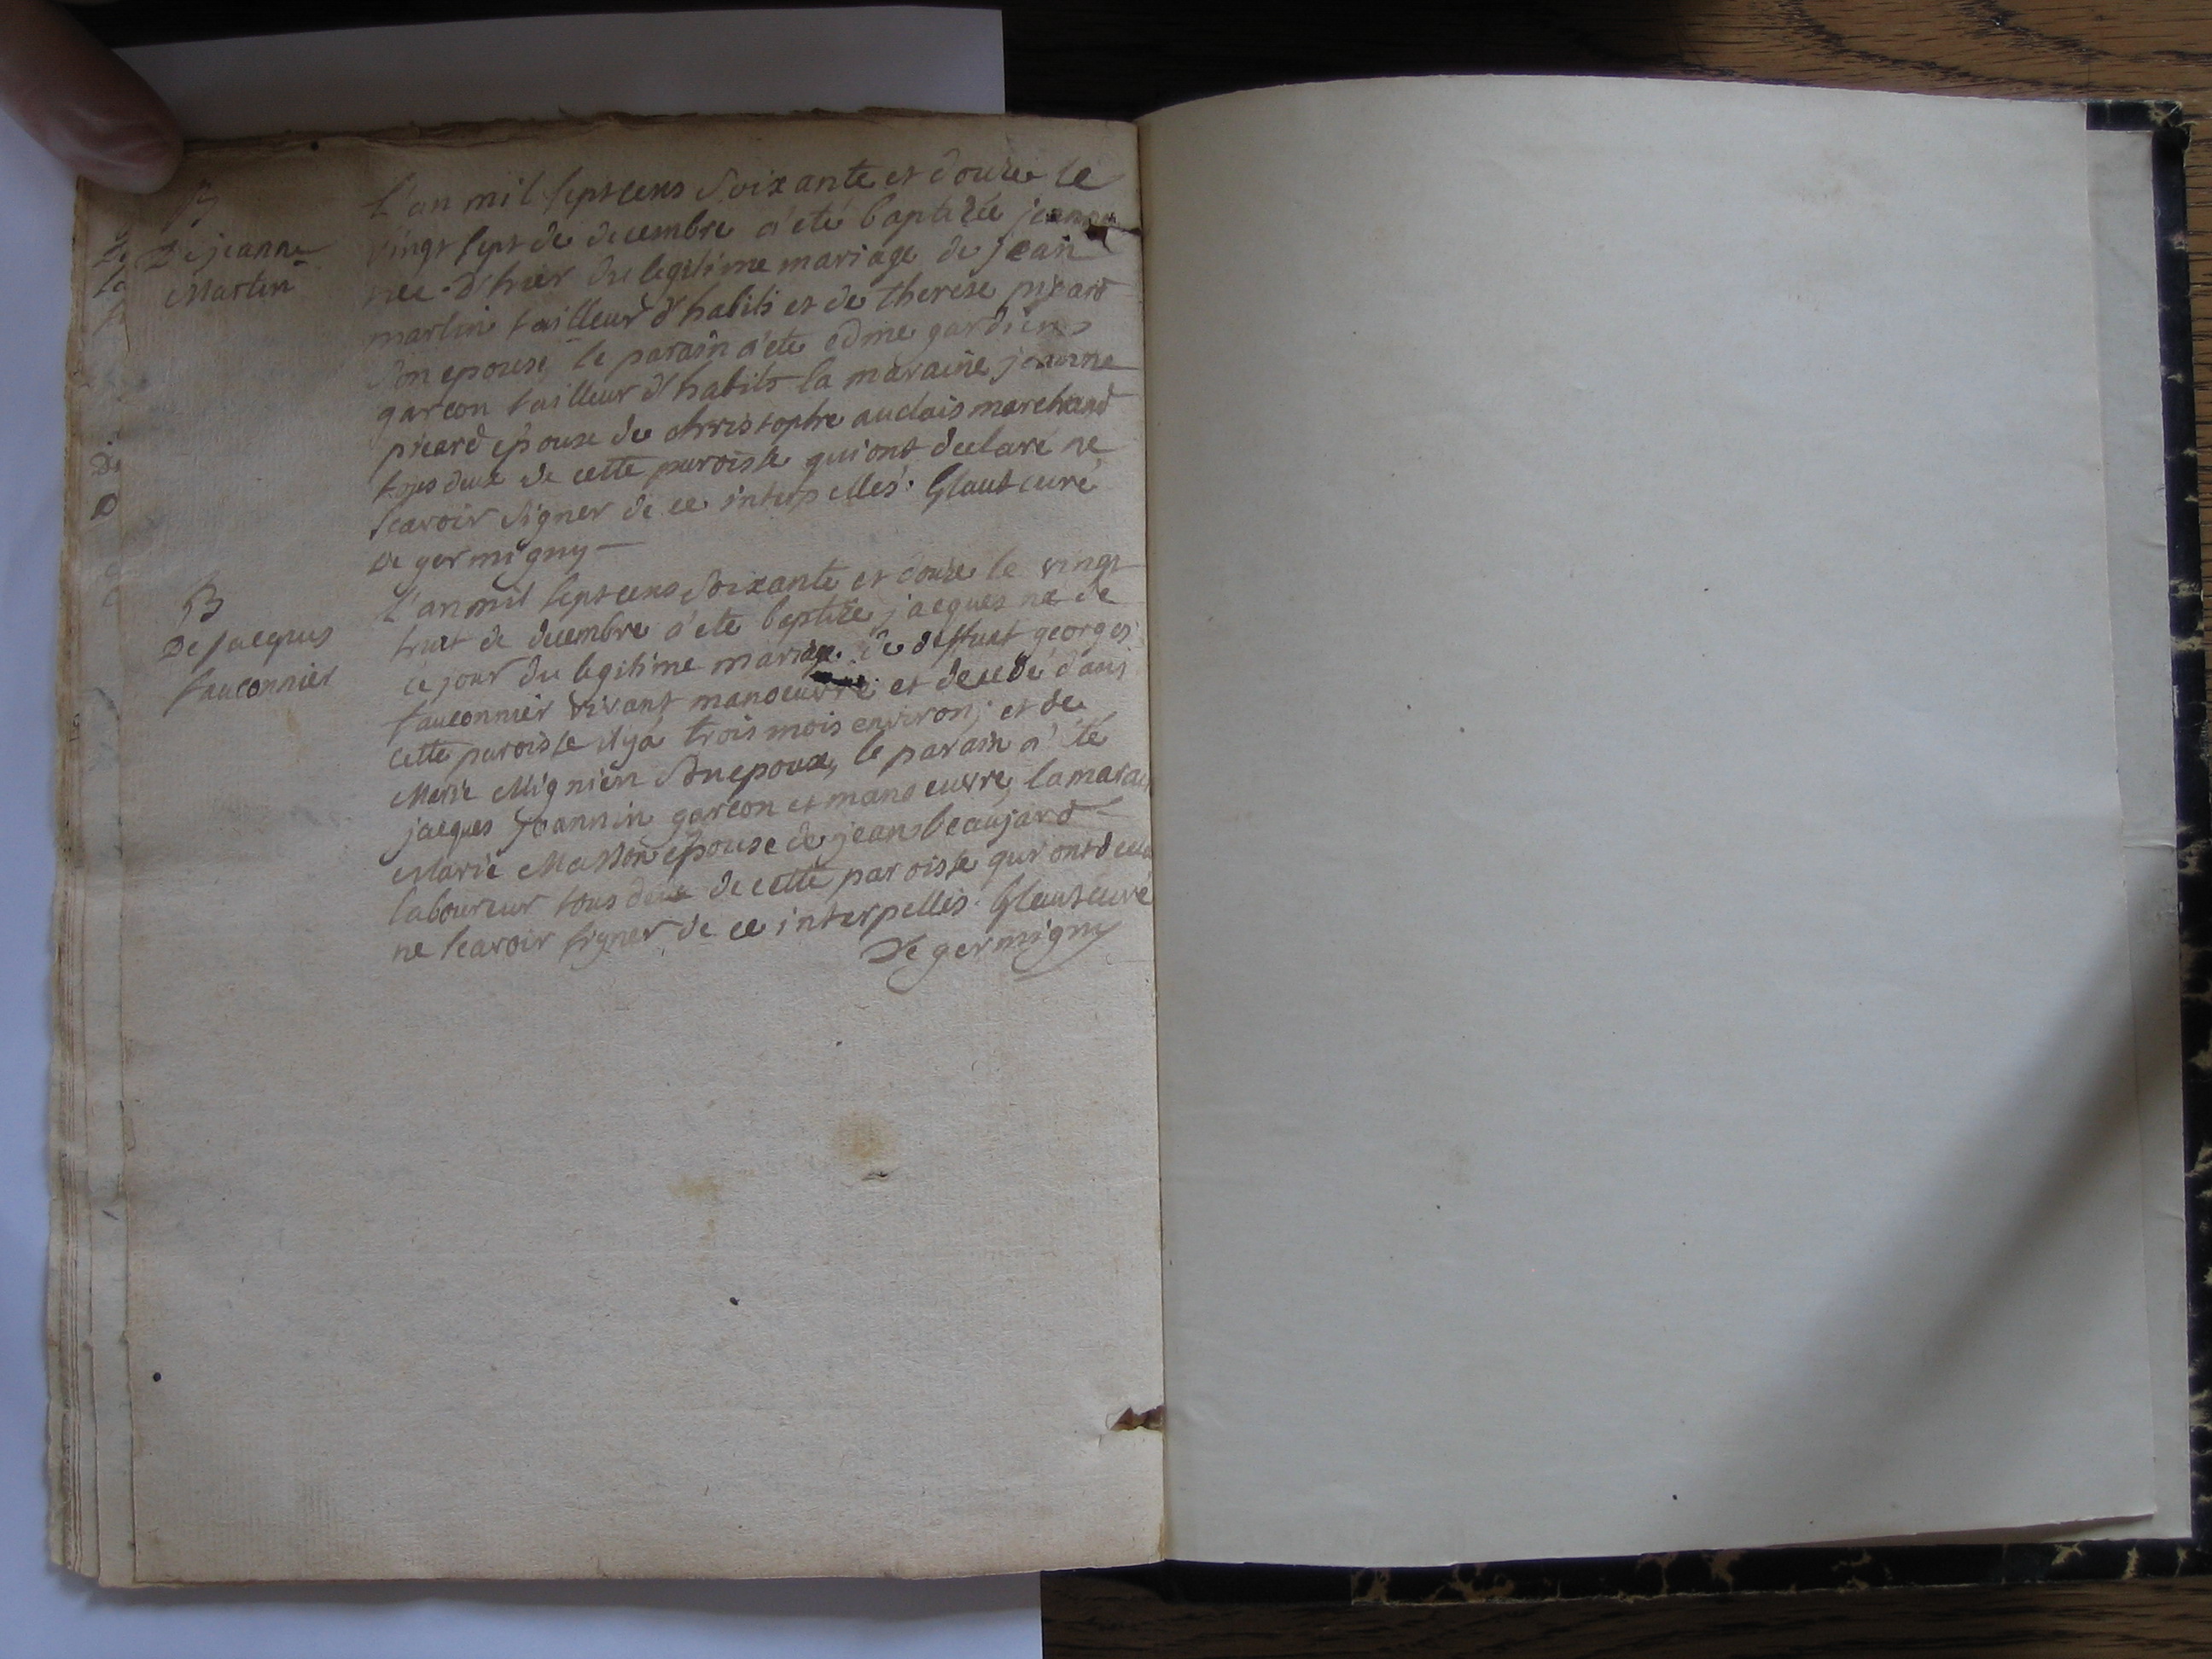 B
De jeanne
Martin
L'an mil sept cens soixante et douze le
vingt sept de decembre a été baptizée jeanne
née d'hier du legitime mariage de jean
martin tailleur d'habits et de therese picard
son epouse, le parain a été edme gardien
garcon tailleur d'habits la maraine jeanne
picard epouse de christophe audais marchand
tous deux de cette paroisse qui ont declaré ne
scavoir signer de ce interpellés. Glaut curé
de germigny
B
De jacques
fauconnier
L'an mil sept cens soixante et douze le vingt
huit de decembre a été baptizé jacques né de
ce jour du legitime mariage de deffunt georges
fauconnier vivant manoeuvre et decedé dans
cette paroisse il y a trois mois environ; et de
Marie Mignien son epouse, le parain a été
jacques Joannin garcon et manoeuvre, la marai
Marie Masson epouse de jean beaujard
laboureur tous deux de cette paroisse qui ont decla
ne scavoir signer de ce interpellés. Glaut curé
De germigny